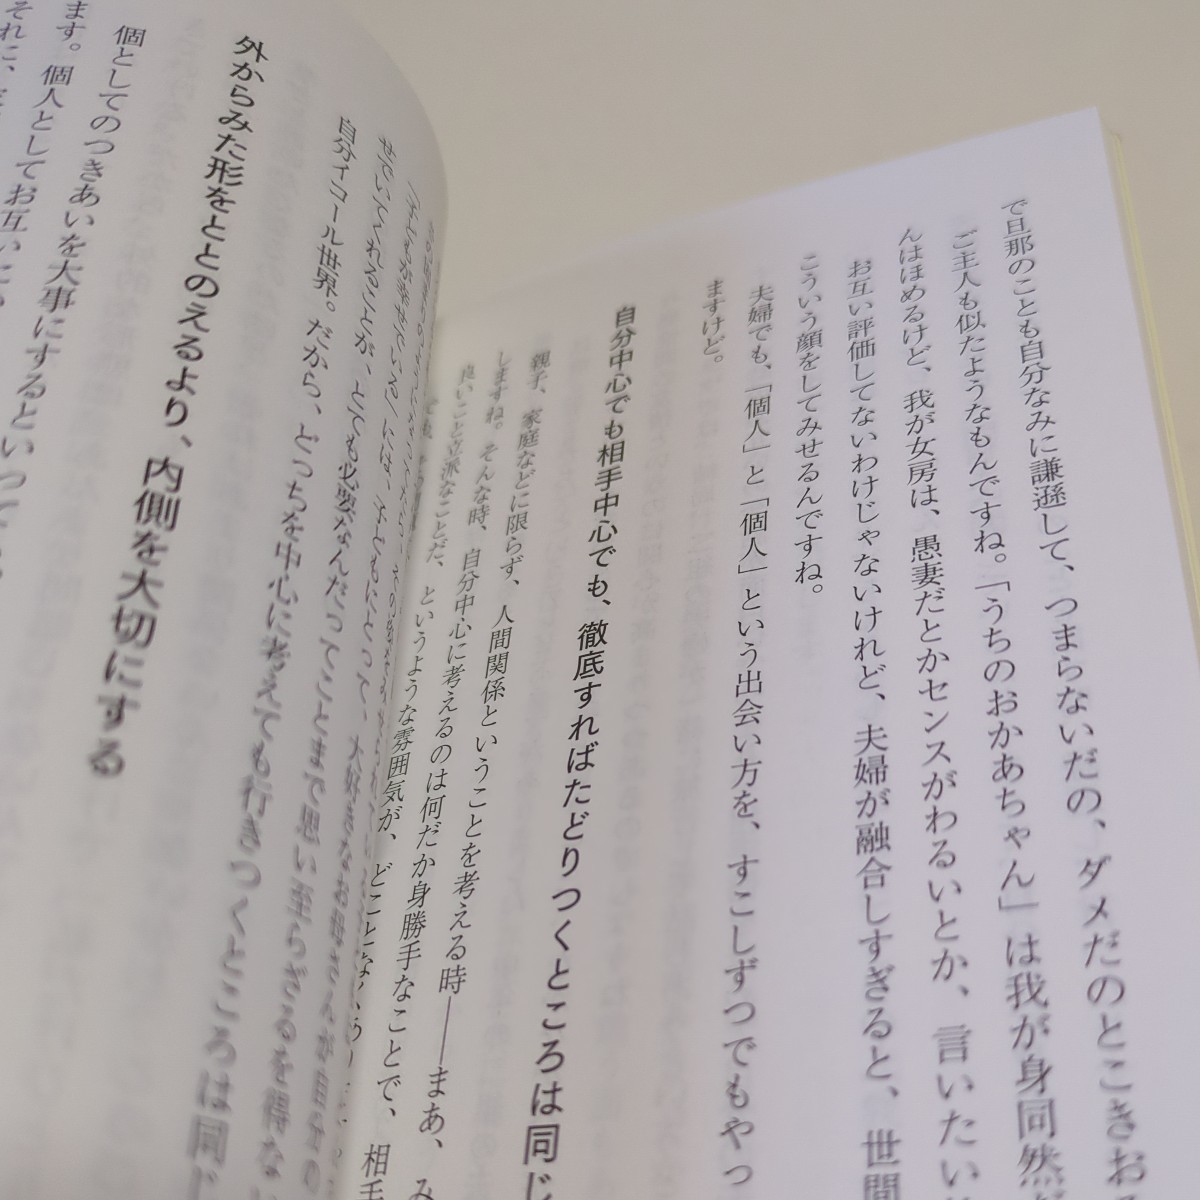 で旦那のことも自分なみに謙遜して、つまらないだの、ダメだのとこきお
ご主人も似たようなもんですね。「うちのおかあちゃん」は我が身同然
んはほめるけど、我が女房は、愚妻だとかセンスがわるいとか、言いたい
お互い評価してないわけじゃないけれど、夫婦が融合しすぎると、世間
こういう顔をしてみせるんですね。
夫婦でも、「個人」と「個人」という出会い方を、すこしずつでもやっ
ますけど。
自分中心でも相手中心でも、徹底すればたどりつくところは同じ
親子、家庭などに限らず、人間関係ということを考える時――まあ、み
しますね。そんな時、自分中心に考えるのは何だか身勝手なことで、相手
良いこと立派なことだ、というような雰囲気が、どことなく
「子どもが幸せでいる」には、子どもにとって、大好きなお母さんが自分の
せでいてくれることが、とても必要なんだってことまで思い至らざるを得な
自分イコール世界。だから、どっちを中心に考えても行きつくところは同じ
外からみた形をととのえるより、内側を大切にする
個としてのつきあいを大事にするといって
ます。個人としてお互いに
それに、